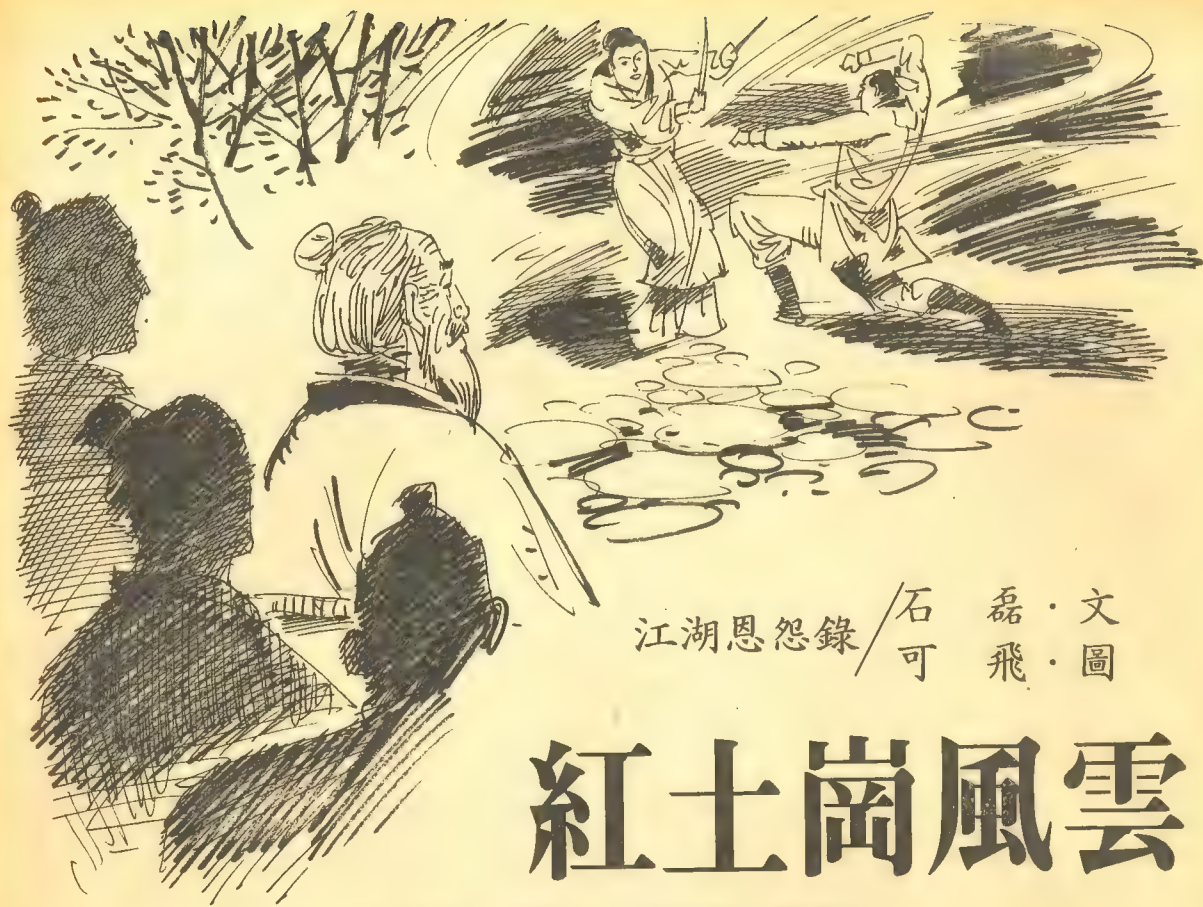 江湖恩怨錄/石磊·文
可飛·圖
紅土崗風雲